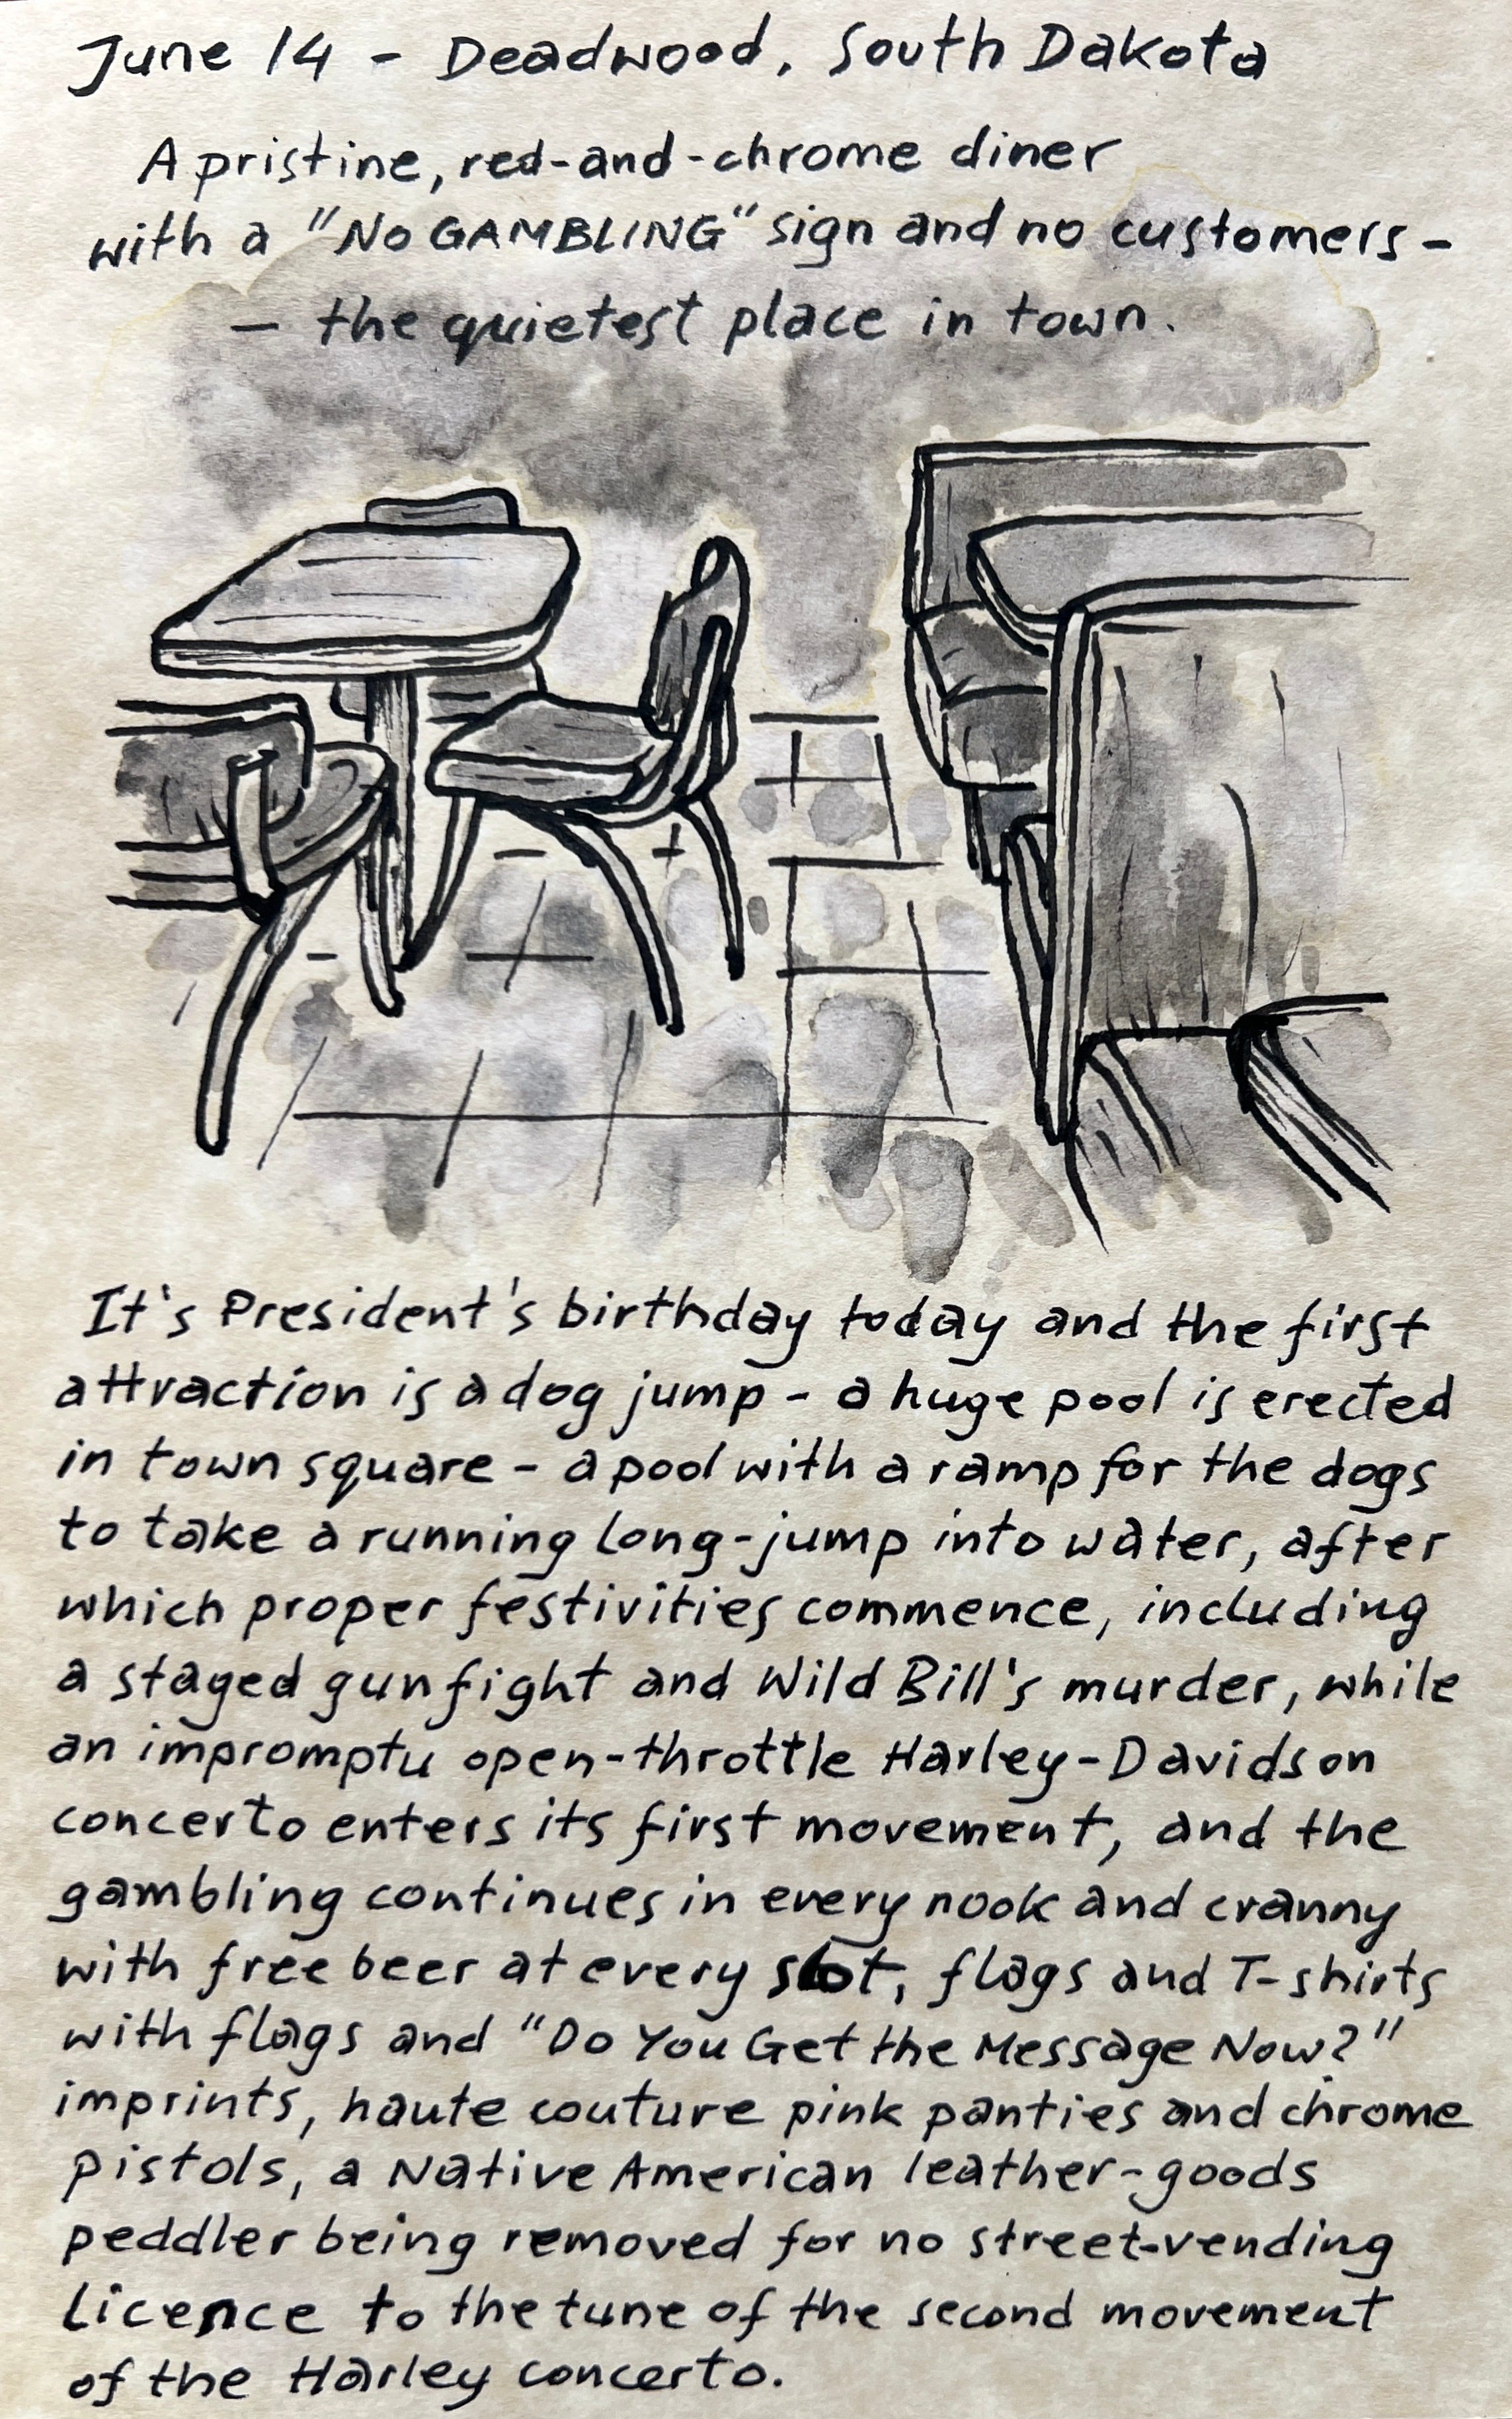 June 14 - Deadwood, South Dakota
A pristine, red-and-chrome diner
with a "No GAMBLING" sign and no customers -
- the quietest place in town.
It's President's birthday today and the first
attraction is a dog jump - a huge pool is erected
in town square - a pool with a ramp for the dogs
to take a running long-jump into water, after
which proper festivities commence, including
a staged gunfight and Wild Bill's murder, while
an impromptu open-throttle Harley-Davidson
concerto enters its first movement, and the
gambling continues in every nook and cranny
with free beer at every slot, flags and T-shirts
with flags and "Do You Get the Message Now?"
imprints, haute couture pink panties and chrome
pistols, a Native American leather-goods
peddler being removed for no street-vending
licence to the tune of the second movement
of the Harley concerto.